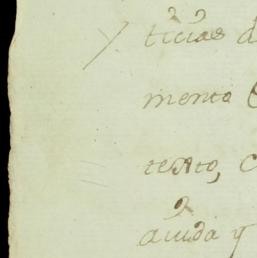 ticias d
mento
texto, C
aiuda y